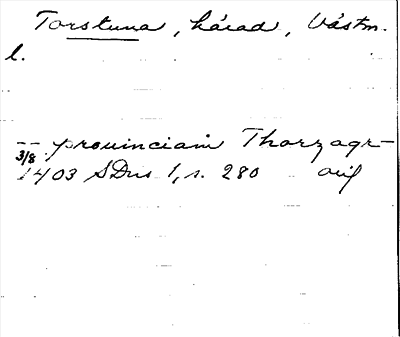 Torstuna, härad, Västm.
l.
-- prouinciam Thorzagr-
3/8 1403 SDns 1, s. 280 avs